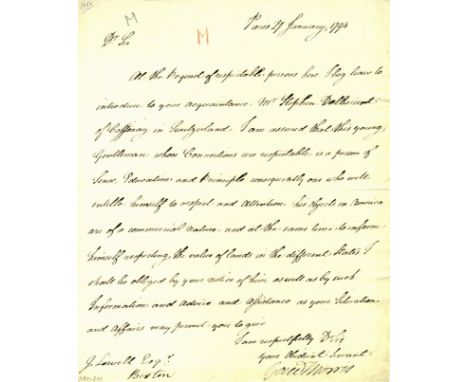 M
M
Paris 27 January, 1794
Dr Sir
At the Request of respectable persons here I beg leave to
introduce to your acquaintance Mr Stephen
of in Switzerland. I am assured that this young
Gentleman whose Connections are respectable is a person of
Sense, Education and Principle consequently one who will
entitle himself to respect and Attention his objects in America
are of a commercial Nature and at the same time to inform
himself respecting the value of lands in the different States. I
shall be obliged by your notice of him as well as by such
Information and Advice and Assistance as your Situation
and Affairs may permit you to give
I am respectfully Dr Sir
your Obedient Servant
Gouv Morris
J. Lowell Esqr.
Boston